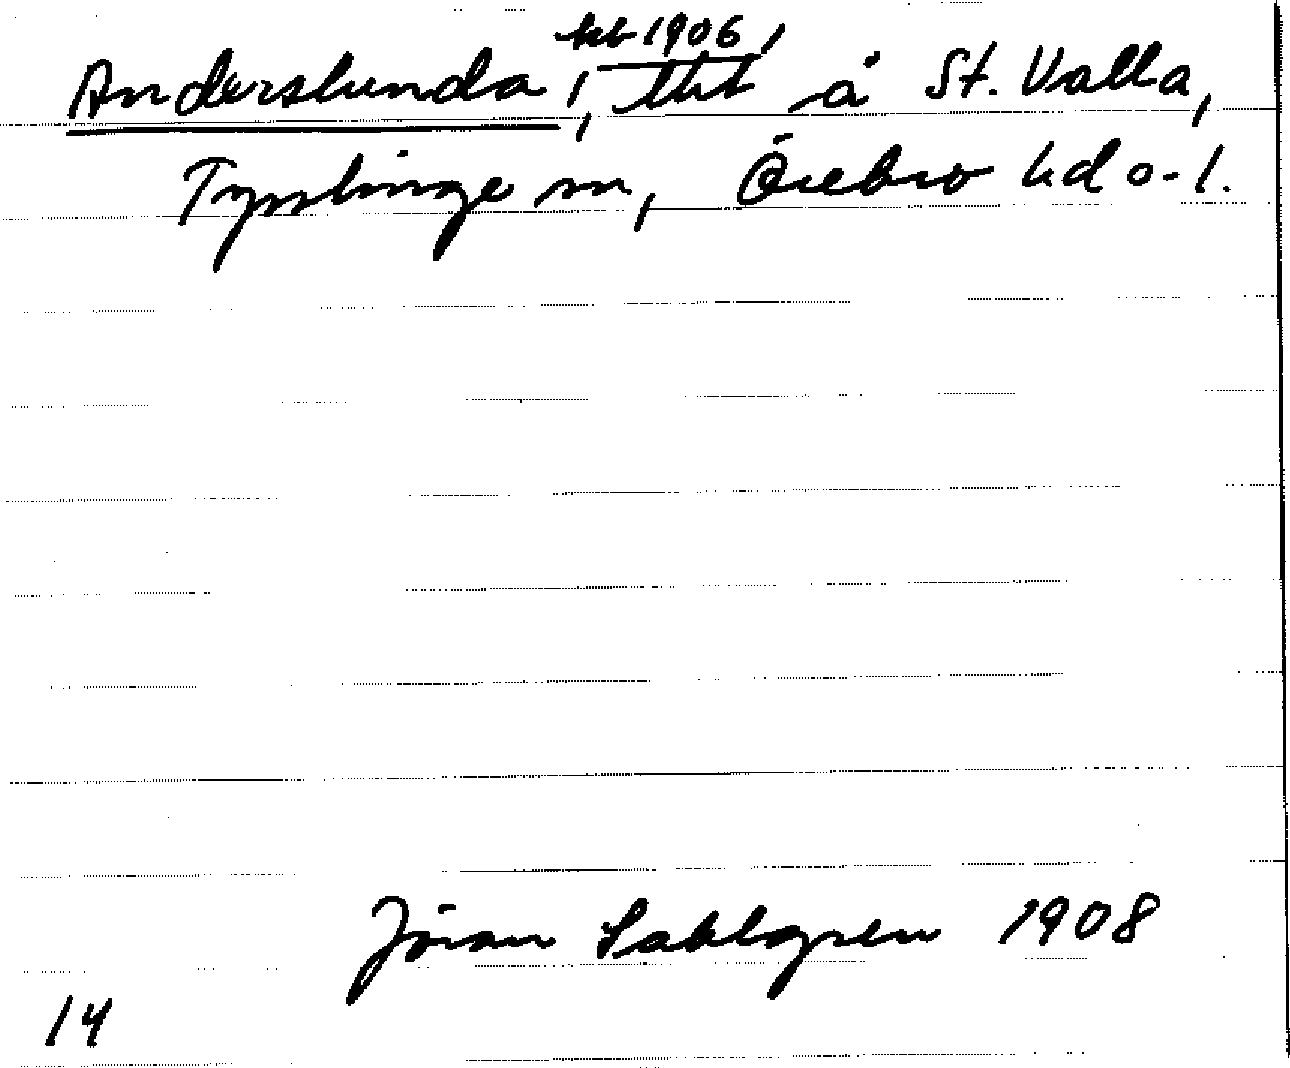 Anderslunda, tht å St. Valla,
Tysslinge sn, Örebro hd o. l.
Jöran Sahlgren 1908
14